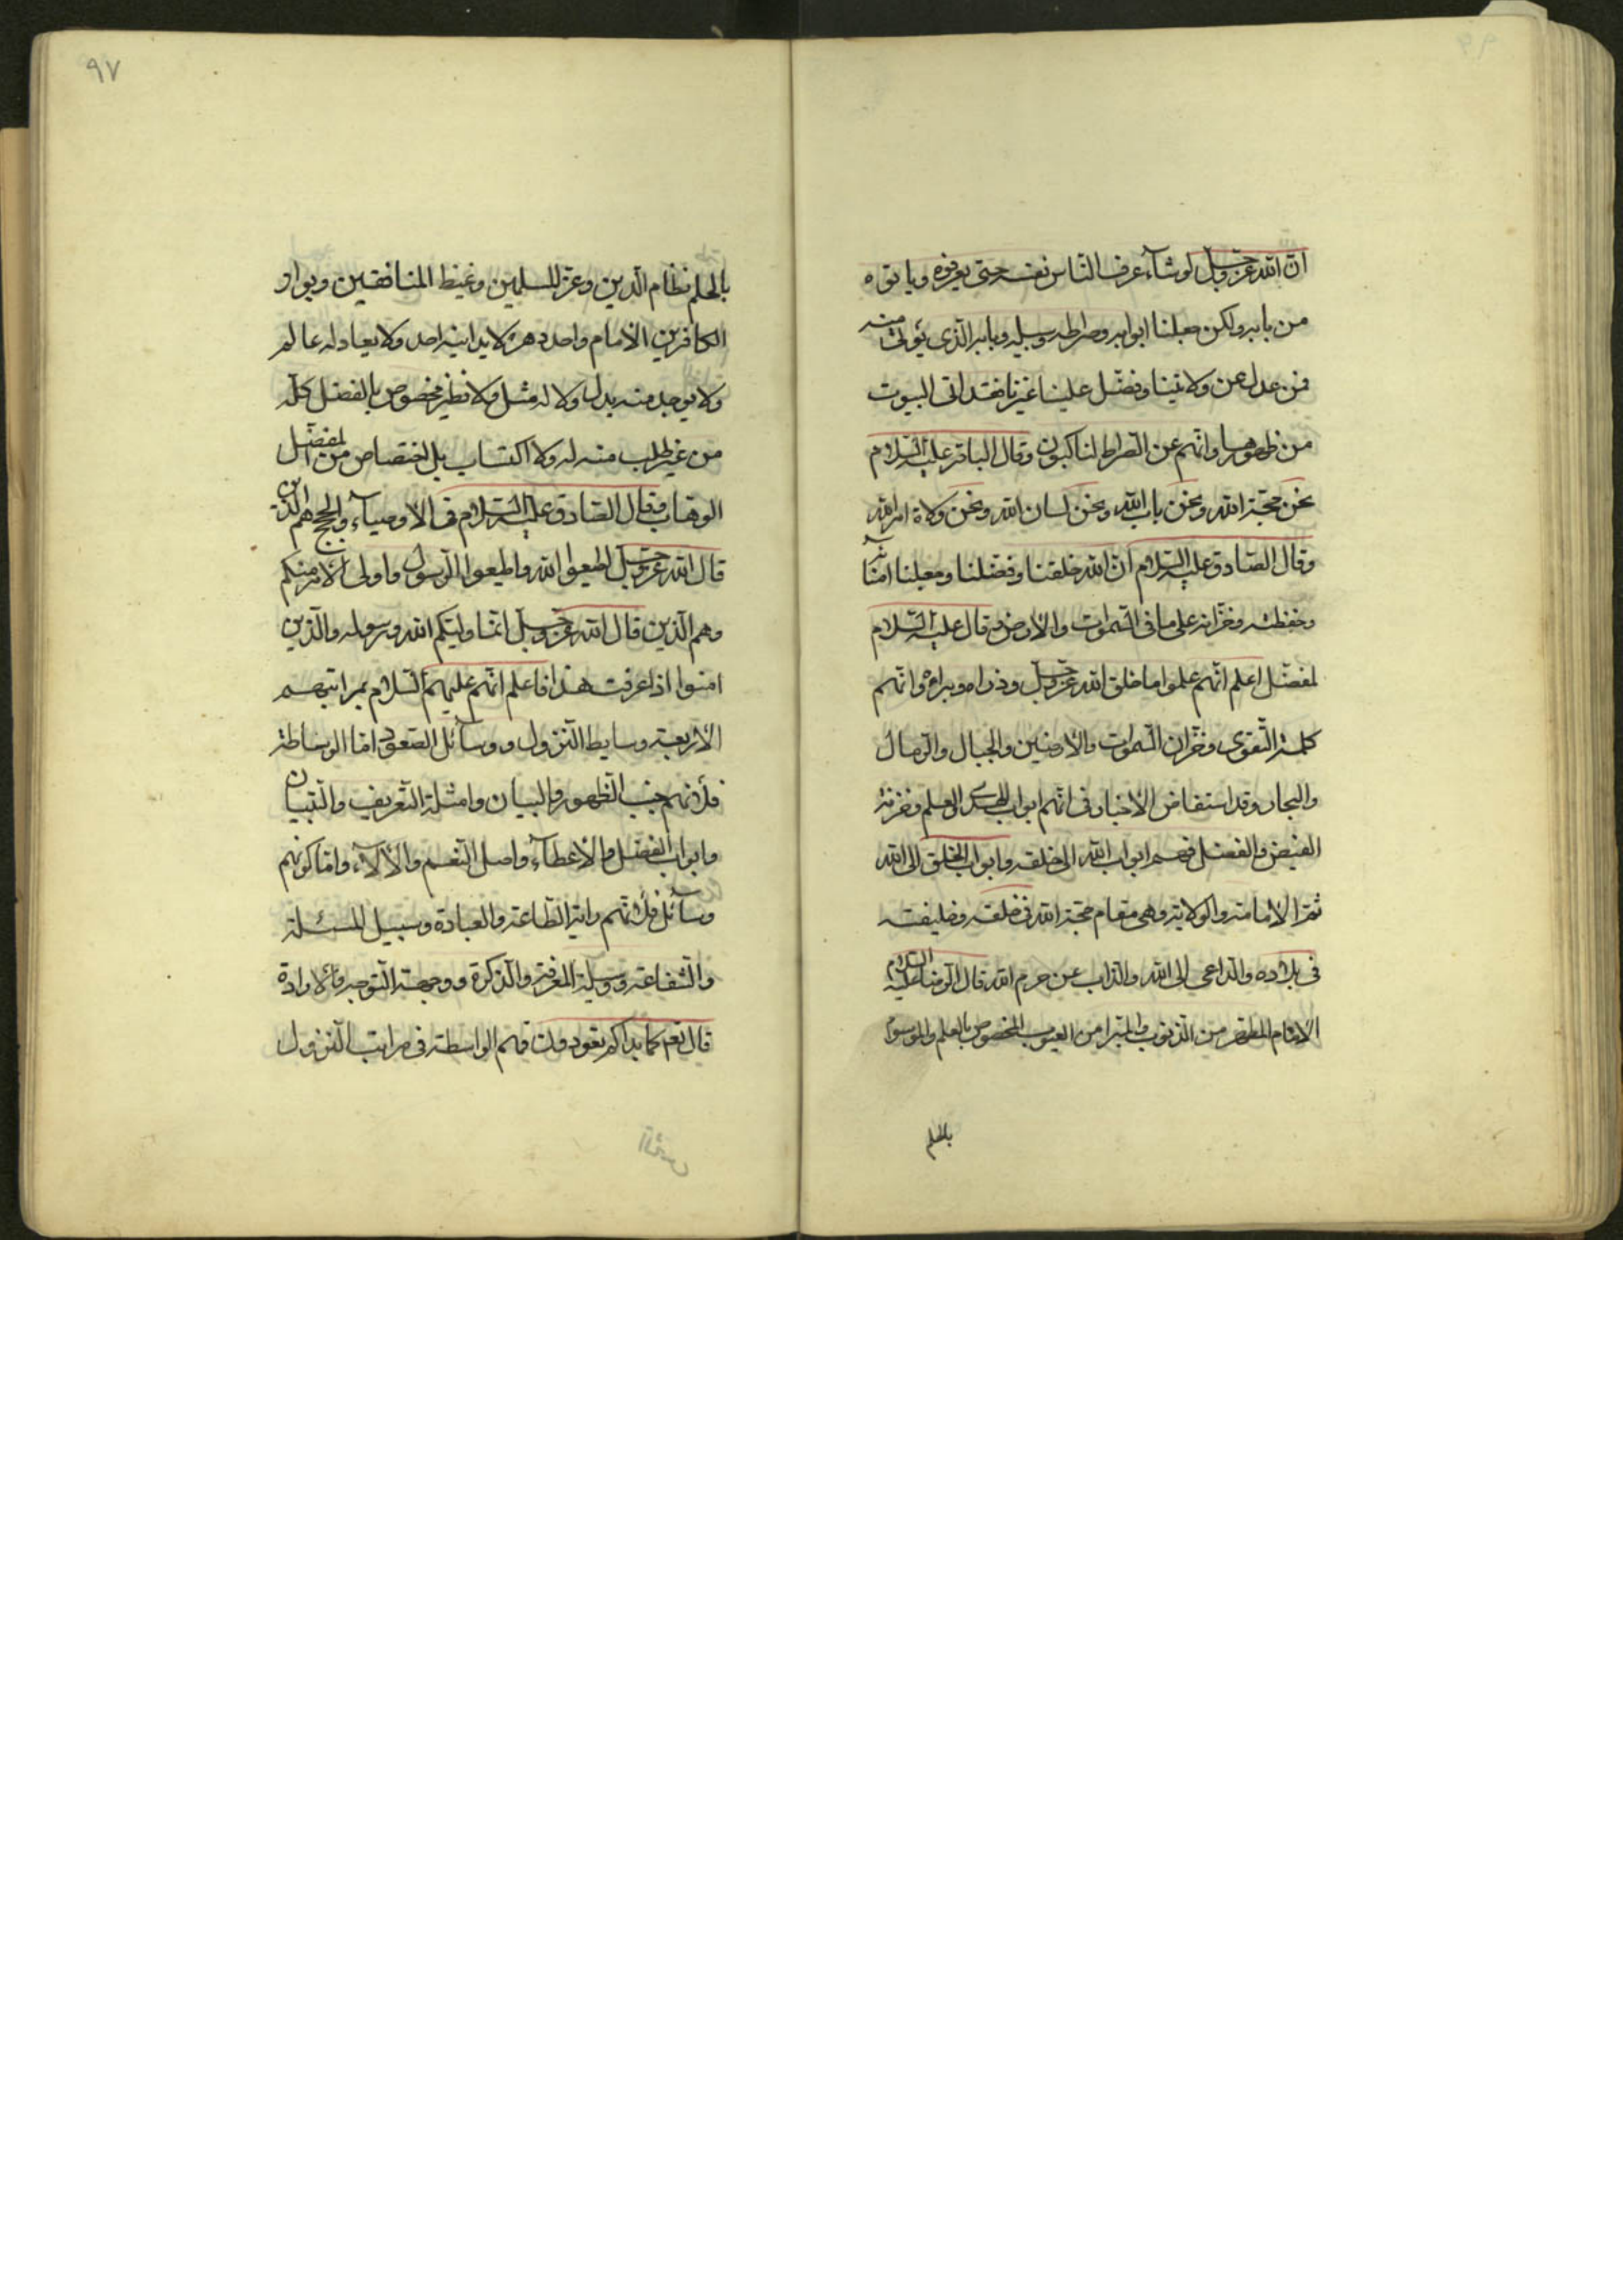 ان الله عز وجل لو شاء عرف الناس نفسه حتى يعرفوه ويأتوه
من بابه ولكن جعلنا ابوابه وصراطه وسبيله وبابه الذى يؤتى منه
فمن عدل عن ولايتنا وفضل علينا غيرنا فقد اتى البيوت
من ظهورها وانهم عن الصراط لناكبون وقال الباقر عليه السلام
نحن حجة الله ونحن باب الله ونحن لسان الله ونحن ولاة امر الله
وقال الصادق عليه السلام ان الله خلقنا وفضلنا وجعلنا امنائه
وحفظته وخزانه على ما فى السموات والارض وقال عليه السلام
لمفضل اعلم انهم علموا ما خلق الله عز وجل وذراه وبراه وانهم
كلمة التقوى وخزان السموات والارضين والجبال والرمال
والبحار وقد استفاض الاخبار فى انهم ابواب الهدى الى العلم وخزنة
الفيض والفضل فهم ابواب الله الى خلقه وابواب الخلق الى الله
ثم الامامة والولاية وهى مقام حجة الله فى خلقه وخليفته
فى بلاده والداعى الى الله والذاب عن حرم الله قال الرضا عليه السلام
الامام المطهر من الذنوب والمبرا من العيوب المخصوص بالعلم والموسوم
بالحلم
٩٧
بالحلم نظام الدين وعز المسلمين وغيظ المنافقين وبوار
الكافرين الامام واحد دهره لا يدانيه احد ولا يعادله عالم
ولا يوجد منه بدل ولا له مثل ولا نظير مخصوص بالفضل كله
من غير طلب منه له ولا اكتساب بل اختصاص من المفضل
الوهاب وقال الصادق عليه السلام فى الاوصياء والحجج هم الذين
قال الله عز وجل اطيعوا الله واطيعوا الرسول واولى الامر منكم
وهم الذين قال الله عز وجل انما وليكم الله ورسوله والذين
امنوا اذا عرفت هذا فاعلم انهم عليهم السلام بمراتبهم
الاربعة وسايط النزول ووسائل الصعود اما الوساطة
فلانهم جنب الظهور والبيان وامثلة التعريف والتبيان
وابواب الفضل والاعطاء واصل النعم والآلاء واما كونهم
وسائل فلانهم راية الطاعة والعبادة وسبيل المسئلة
والشفاعة ووسيلة المعرفة والذكرة ووجهة التوجه والارادة
قال نعم كما بداكم تعودون فهم الواسطة فى مراتب النزول